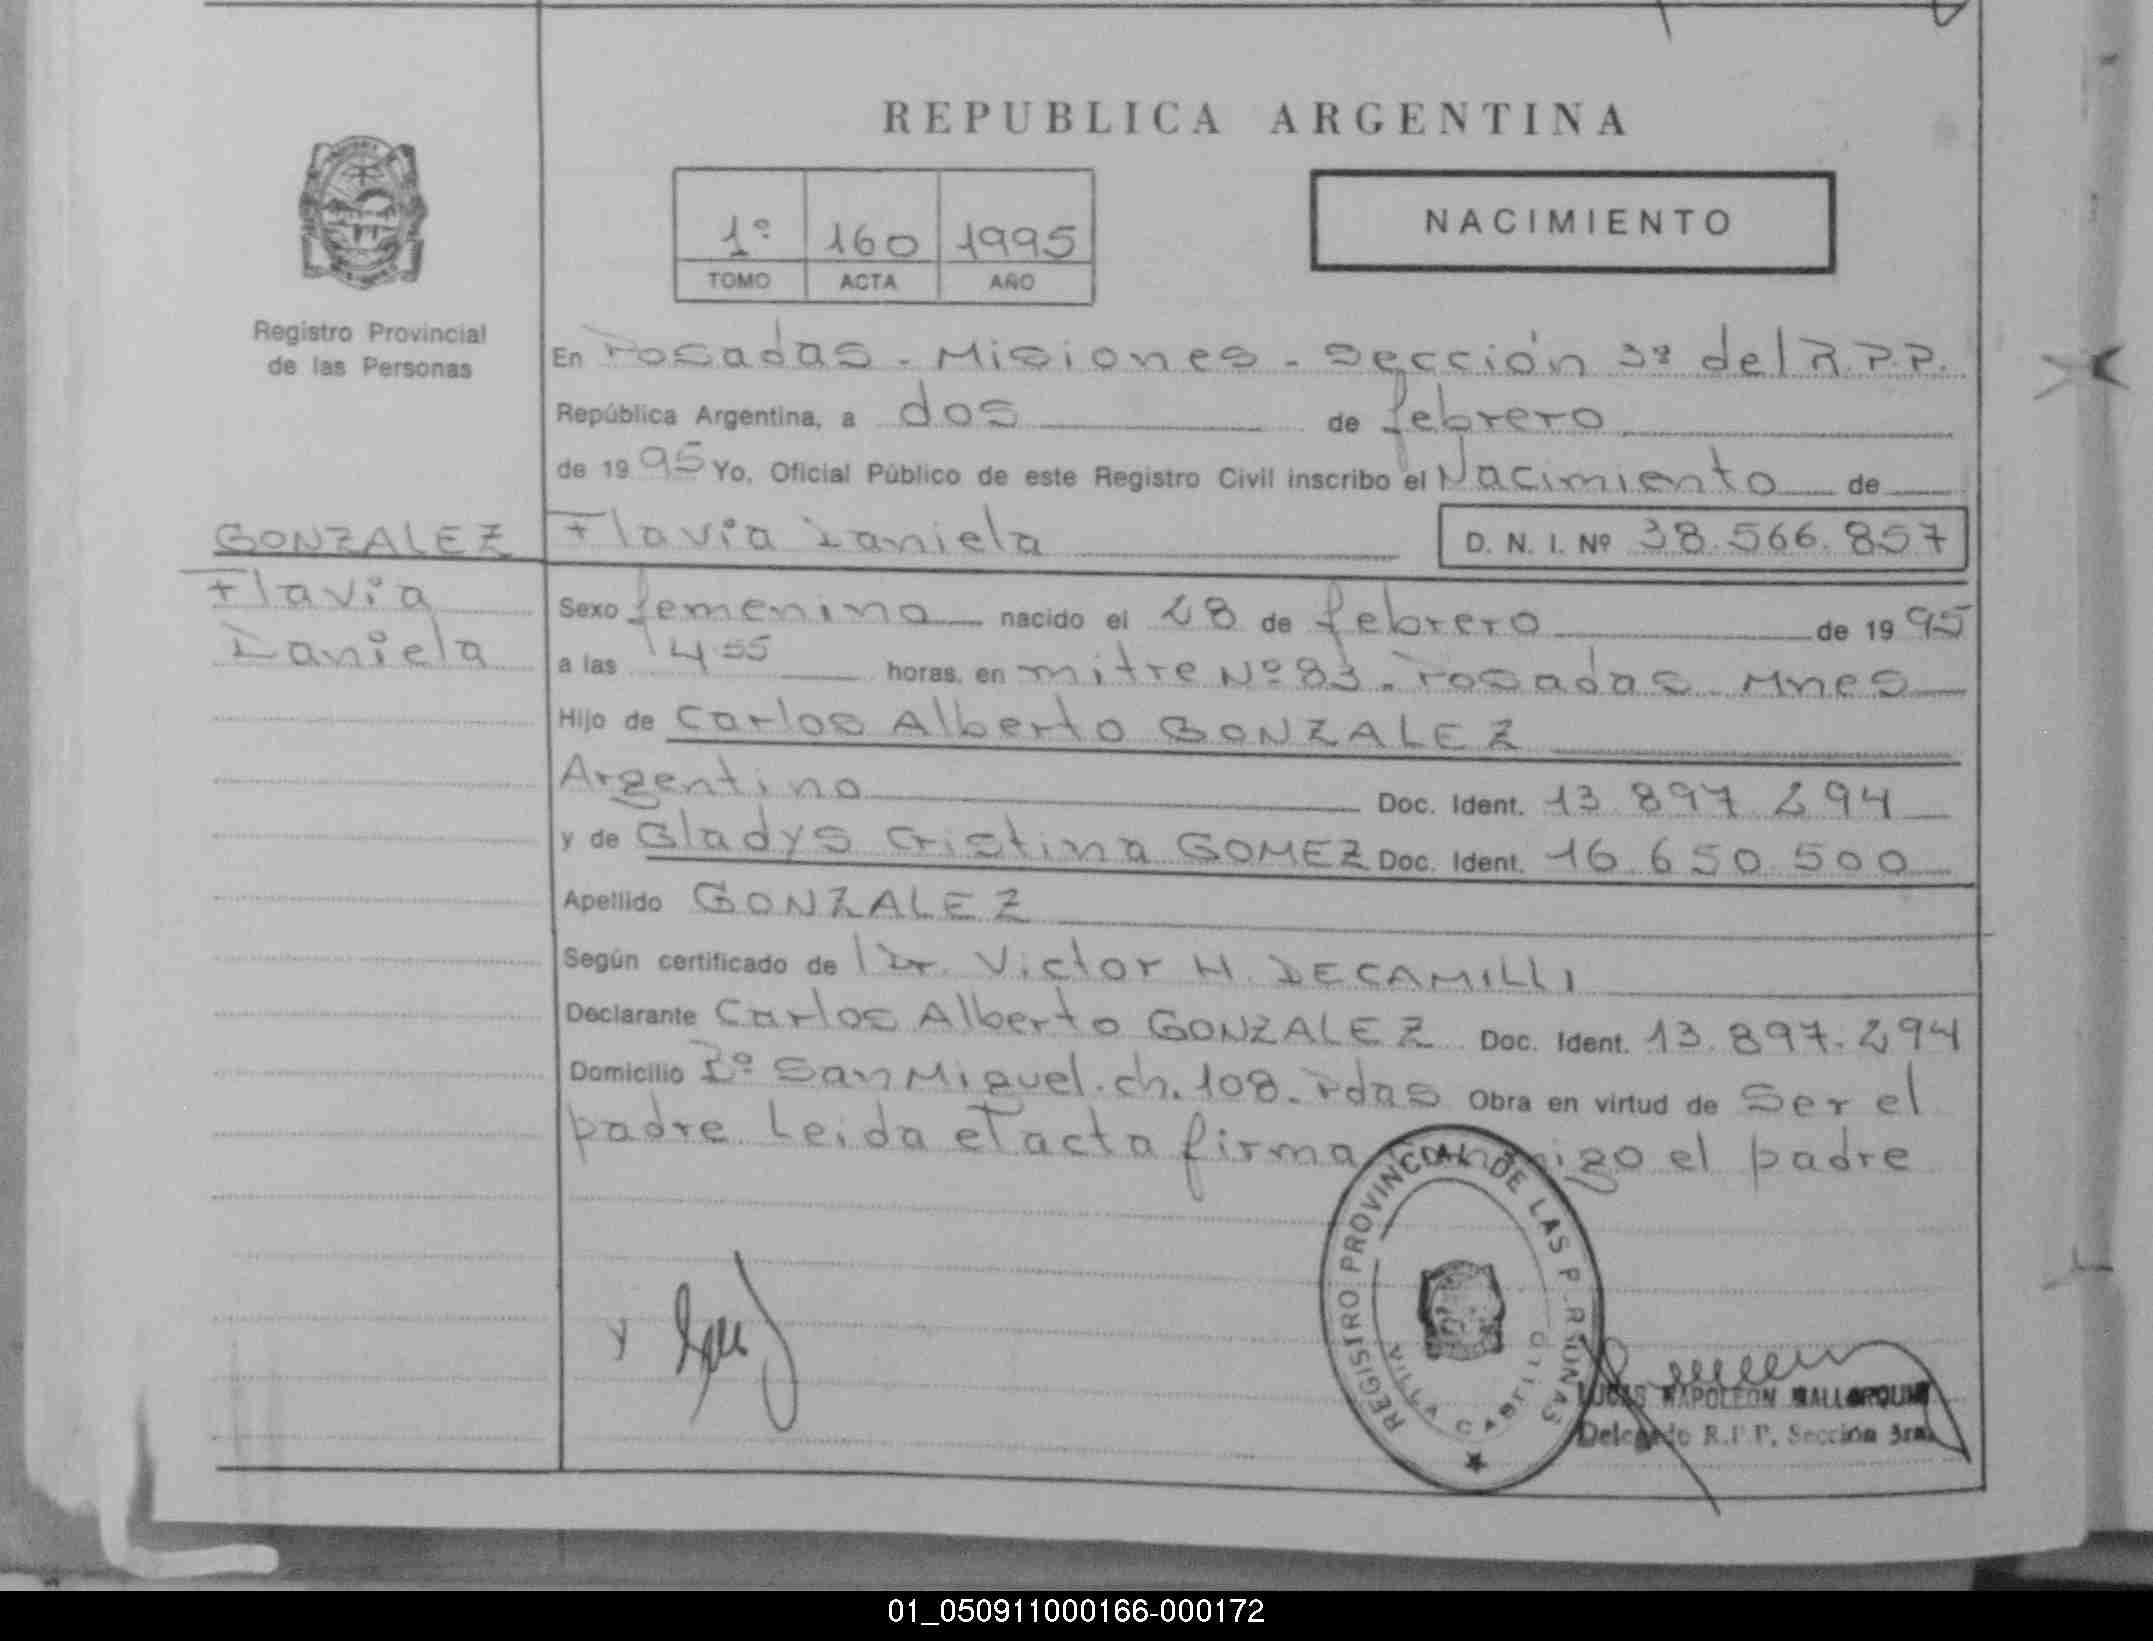 REPUBLICA ARGENTINA
1º 160 1995
TOMO ACTA AÑO
NACIMIENTO
Registro Provincial
de las Personas
En Posadas - Misiones - Sección 3ª del R.P.P.
República Argentina, a dos de febrero
de 1995 Yo, Oficial Público de este Registro Civil inscribo el Nacimiento de
GONZALEZ
Flavia
Daniela
Flavia Daniela D. N. I. Nº 38.566.857
Sexo femenino nacido el 28 de febrero de 1995
a las 1455 horas, en mitre Nº 83. Posadas - Mnes
Hijo de Carlos Alberto GONZALEZ
Argentino Doc. Ident. 13 897 294
y de Gladys Cristina GOMEZ Doc. Ident. 16 650 500
Apellido GONZALEZ
Según certificado de Dr. Victor H. DECAMILLI
Declarante Carlos Alberto GONZALEZ Doc. Ident. 13.897.294
Domicilio Bº San Miguel. ch. 108. Pdas Obra en virtud de Ser el
padre. Leida el acta firma conmigo el padre
REGISTRO PROVINCIAL DE LAS PERSONAS
VILLA CABELLO
LUCAS NAPOLEON MALLORQUIN
Delegado R.P.P. Sección 3ra.
01_050911000166-000172